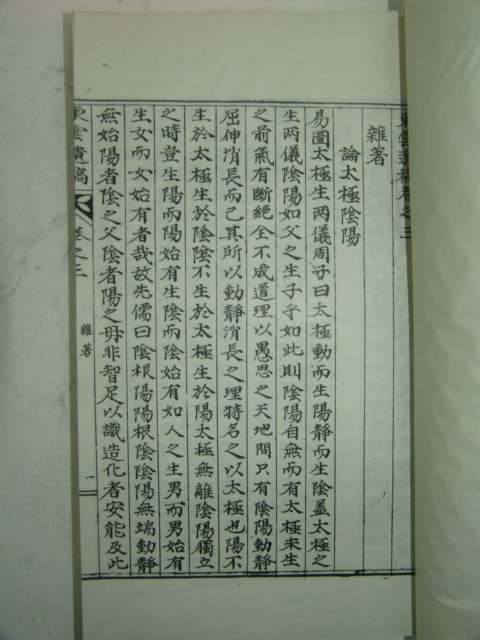 東雲遺稿卷之三
雜著
論太極陰陽
易圖太極生两儀周子曰太極動而生陽靜而生陰盖太極之
生两儀陰陽如父之生子乎如此則陰陽自無而有太極未生
之前氣有斷絕全不成道理以愚思之天地間只有陰陽動靜
屈伸消長而已其所以動靜消長之理特名之以太極也陽不
生於太極生於陰陰不生於太極生於陽太極無離陰陽獨立
之時豈生陽而陽始有生陰而陰始有如人之生男而男始有
生女而女始有者哉故先儒曰陰根陽陽根陰陰陽無端動靜
無始陽者陰之父陰者陽之母非智足以識造化者安能及此
東雲遺稿 卷之三 雜著 一